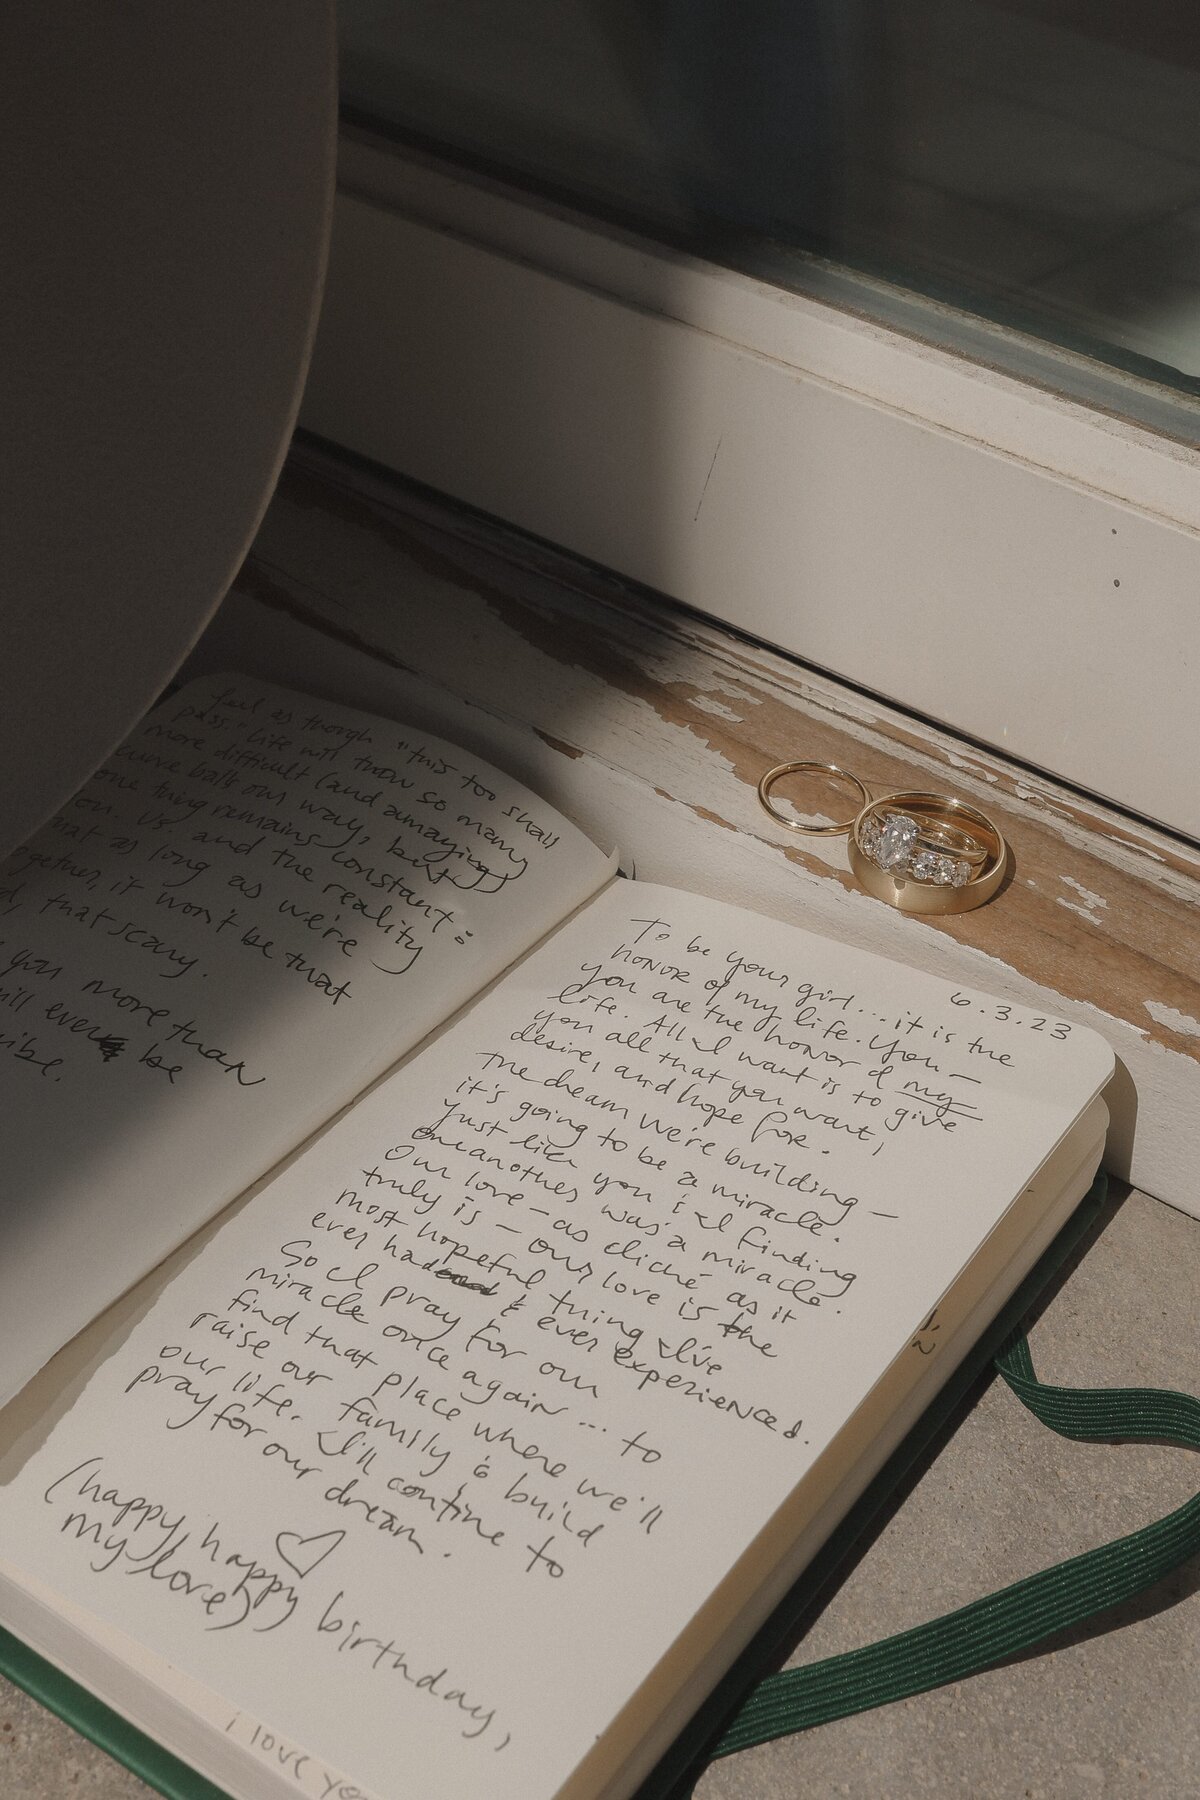 feel as though "this too shall
pass." Life will throw so many
more difficult (and amazing)
curve balls our way, but
one thing remains constant:
on. Us and the reality
that as long as we're
gether, it won't be that
d, that scary.
you more than
ill ever be
ribe.
6.3.23
To be your girl... it is the
honor of my life. You —
you are the honor of my
life. All I want is to give
you all that you want,
desire, and hope for.
The dream we're building —
it's going to be a miracle.
Just like you & I finding
oneanother was a miracle.
Our love — as cliché as it
truly is — our love is the
most hopeful thing I've
ever had & ever experienced.
So I pray for our
miracle once again... to
find that place where we'll
raise our family & build
our life. I'll contine to
pray for our dream.
♡
(happy, happy birthday,
my love)
i love yo